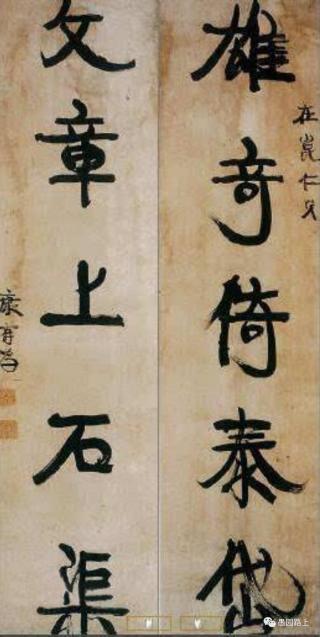 在崑仁兄
雄奇倚泰岱
文章上石渠
康有为
愚园路上